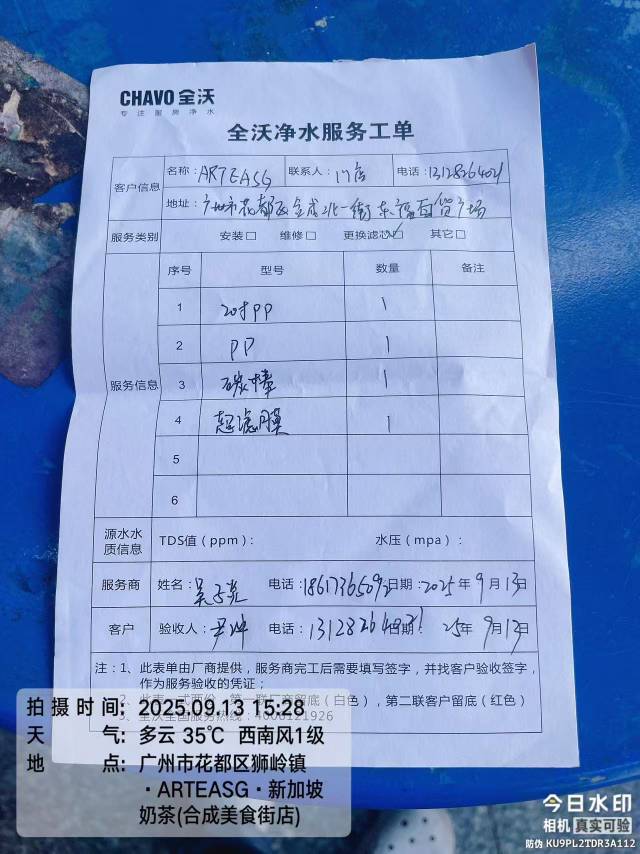 CHAVO 全沃
专注服务净水
全沃净水服务工单
客户信息 名称: ARTEASG 联系人: 门店 电话: 13128264021
地址: 广州市花都区合成北一街东福百货广场
服务类别 安装□ 维修□ 更换滤芯☑ 其它□
服务信息 序号 型号 数量 备注
1 20寸PP 1
2 PP 1
3 碳棒 1
4 超滤膜 1
5
6
源水水质信息 TDS值(ppm): 水压(mpa):
服务商 姓名: 电话: 18617365092 日期: 2025年9月13日
客户 验收人: 电话: 日期: 25年9月13日
注:1、此表单由厂商提供,服务商完工后需要填写签字,并找客户验收签字,
作为服务验收的凭证;
2、此表一式两份,第一联厂商留底(白色),第二联客户留底(红色)
3、全沃全国服务热线:4006121926
拍摄时间: 2025.09.13 15:28
天气: 多云 35℃ 西南风1级
地点: 广州市花都区狮岭镇
·ARTEASG·新加坡
奶茶(合成美食街店)
今日水印
相机 真实可验
防伪 KU9PL2TDR3A112